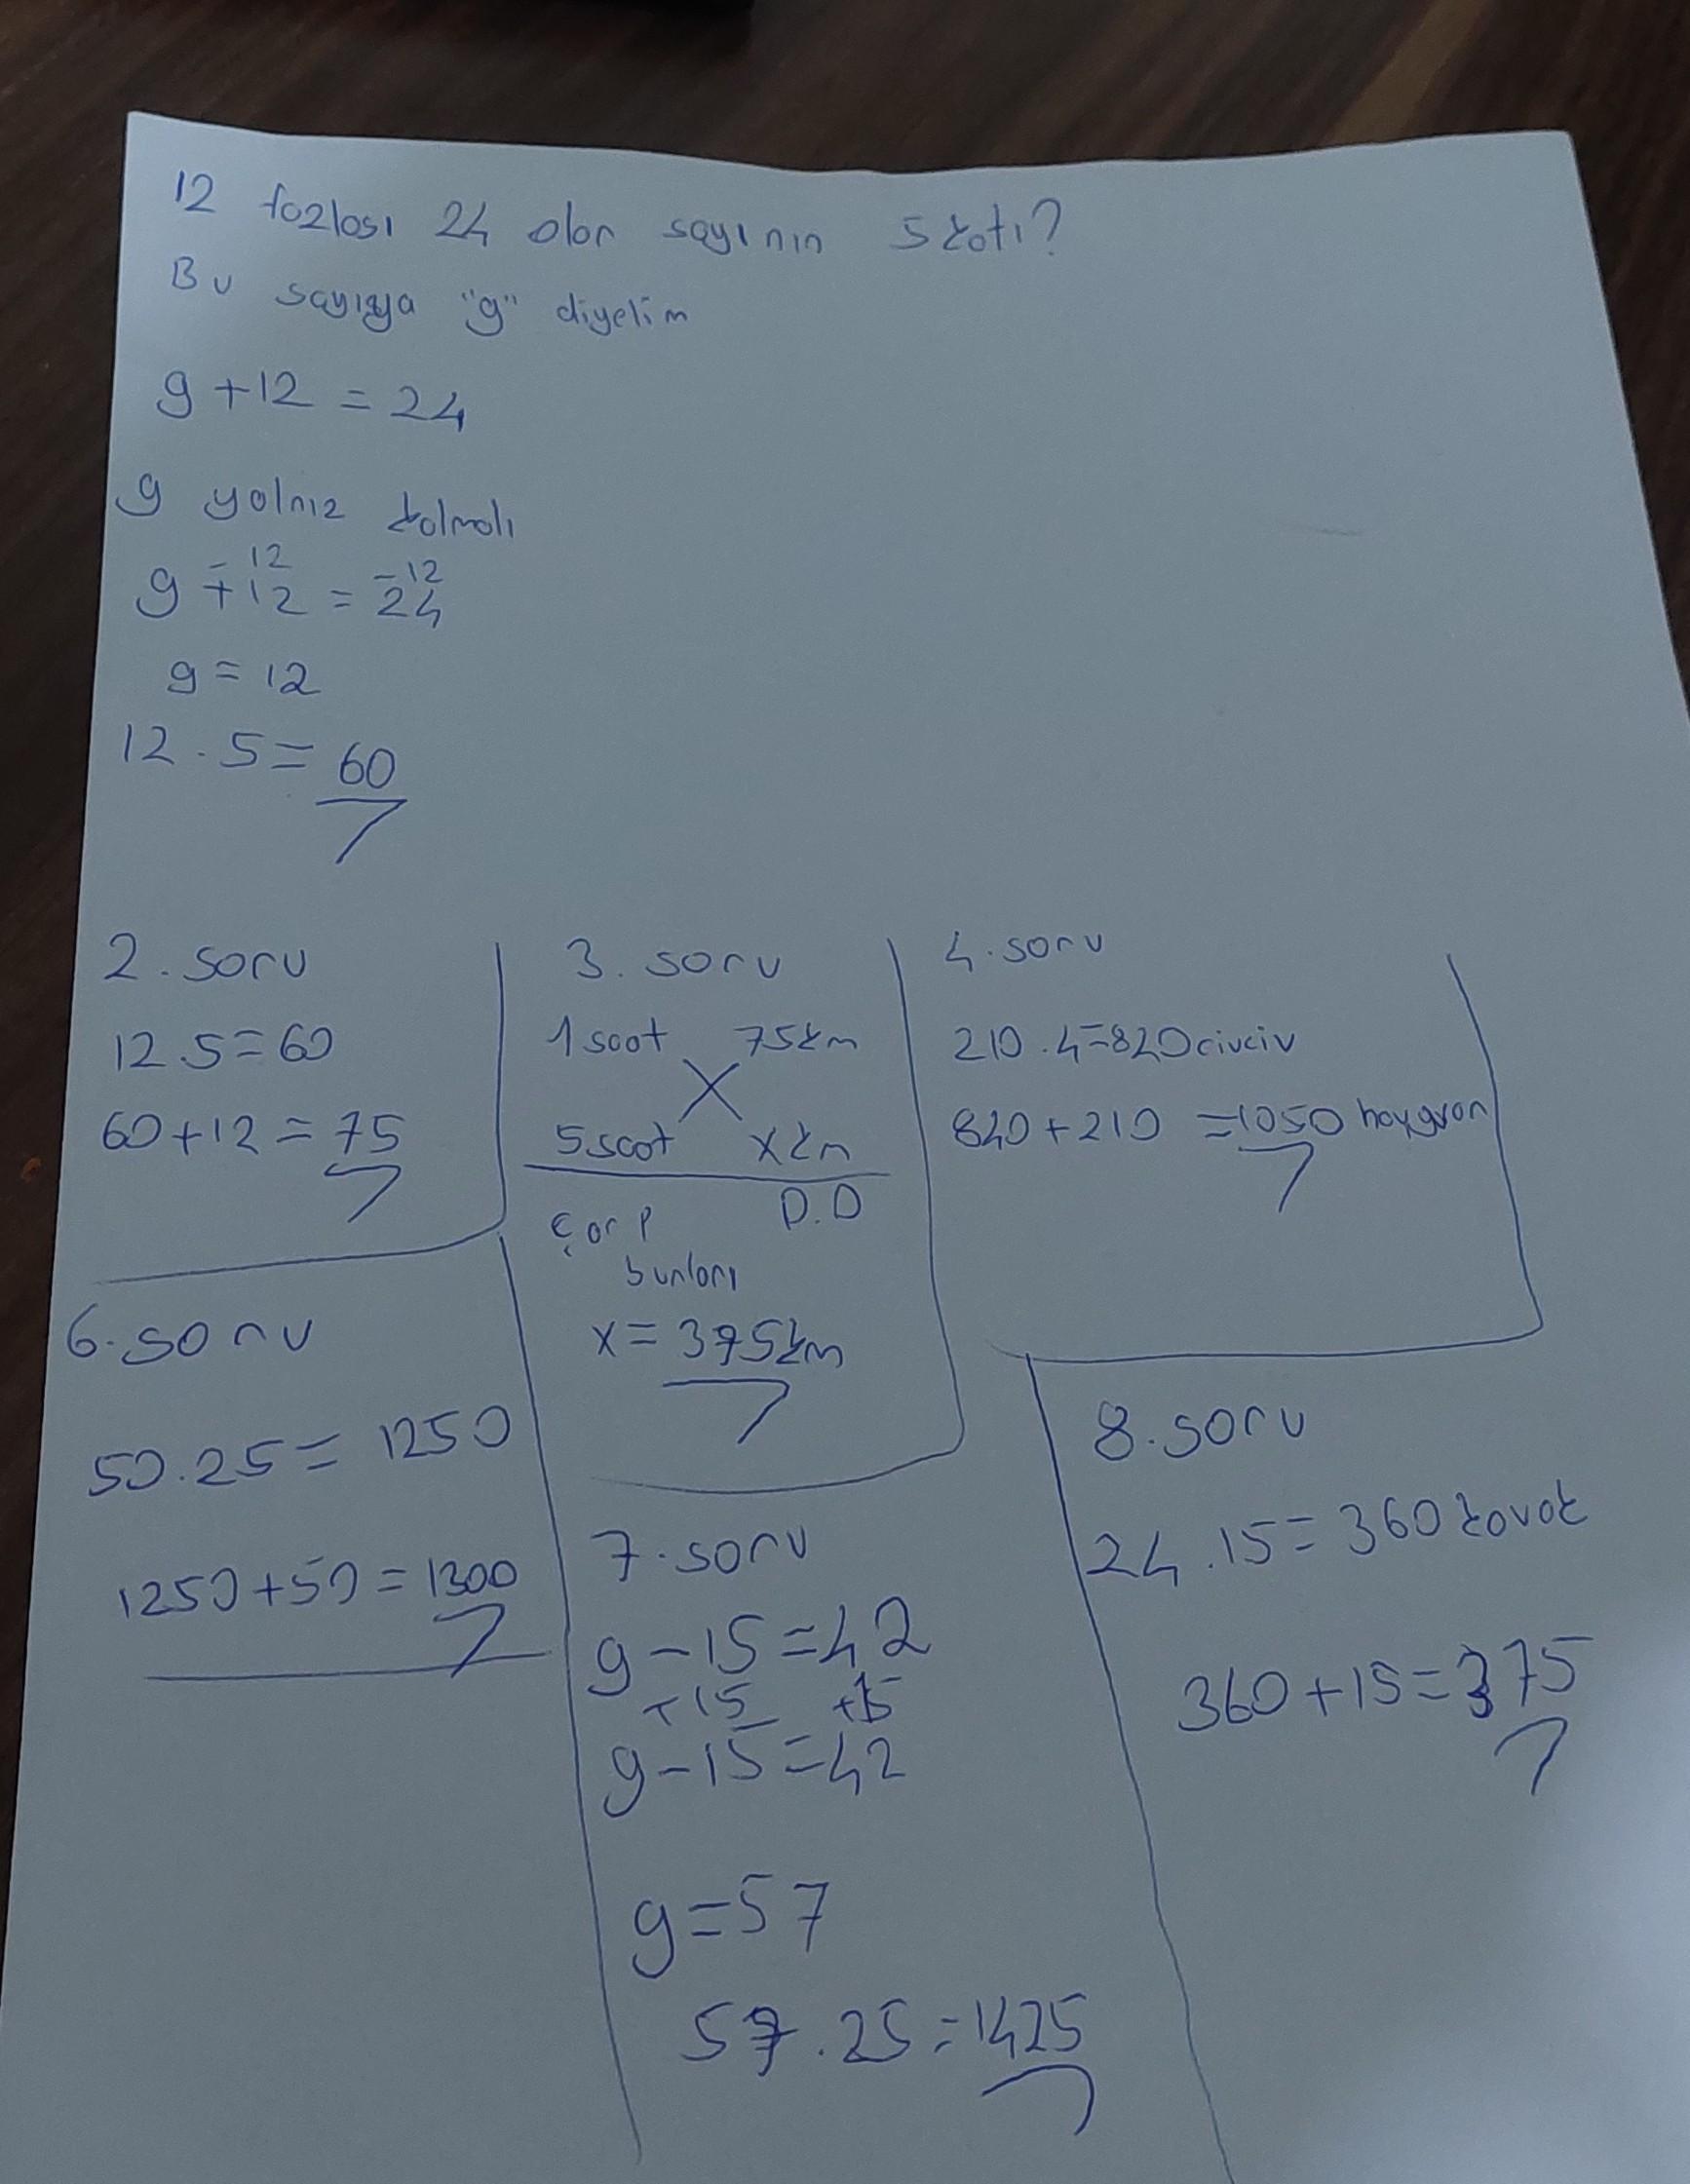 12 fazlası 24 olan sayının 5 katı?
Bu sayıya "g" diyelim
g + 12 = 24
g yalnız kalmalı
-12 -12
g + 12 = 24
g = 12
12 . 5 = 60
2. soru
12.5=60
60+12=75
3. soru
1 saat 75km
5 saat x km
D.D
Çarp
bunları
x = 375km
4. soru
210 . 4=820 civciv
840 + 210 =1050 hayvan
6. soru
50.25 = 1250
1250+50 = 1300
7. soru
g - 15 = 42
+15 +15
g - 15 = 42
g = 57
57 . 25 = 1425
8. soru
24 . 15 = 360 kavak
360 + 15 = 375